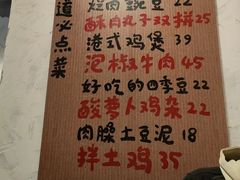 道必点菜
烂肉豌豆 22
酥肉丸子双拼25
港式鸡煲 39
泡椒牛肉 45
好吃的四季豆 22
酸萝卜鸡杂 22
肉臊土豆泥 18
拌土鸡 35